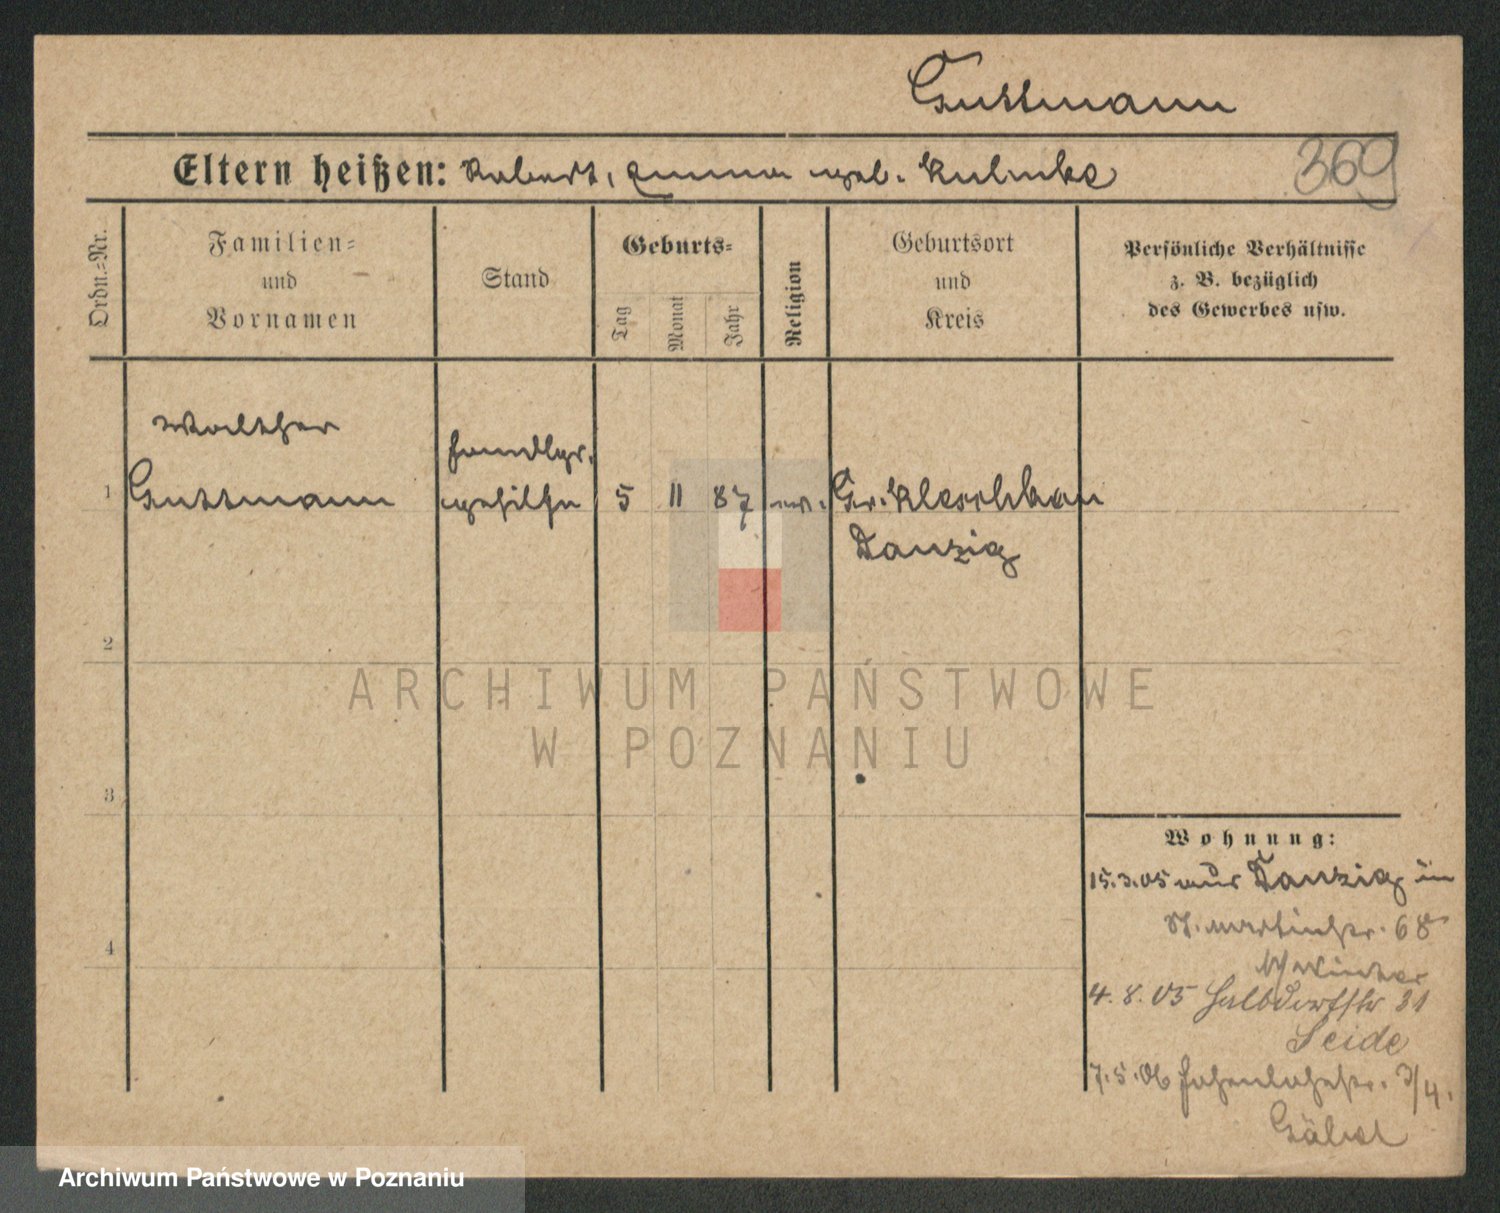 Guttmann
Eltern heißen: Robert, Emma geb. Kulinke
369
Ordn.=Nr.
Familien=
und
Vornamen
Stand
Geburts=
Tag
Monat
Jahr
Religion
Geburtsort
und
Kreis
Persönliche Verhältnisse
z. B. bezüglich
des Gewerbes usw.
Walther
Handlgs.
1 Guttmann gehilfe 5 11 87 ev. Gr. Kleschkau
Danzig
2
ARCHIWUM PAŃSTWOWE
W POZNANIU
3
Wohnung:
15.3.05 aus Danzig in
St. Martinstr. 68
4
b/ Winter
4.8.05 Halbdorfstr 31
Seide
7.5.06 Hohenlohestr. 3/4.
Gäbel
Archiwum Państwowe w Poznaniu